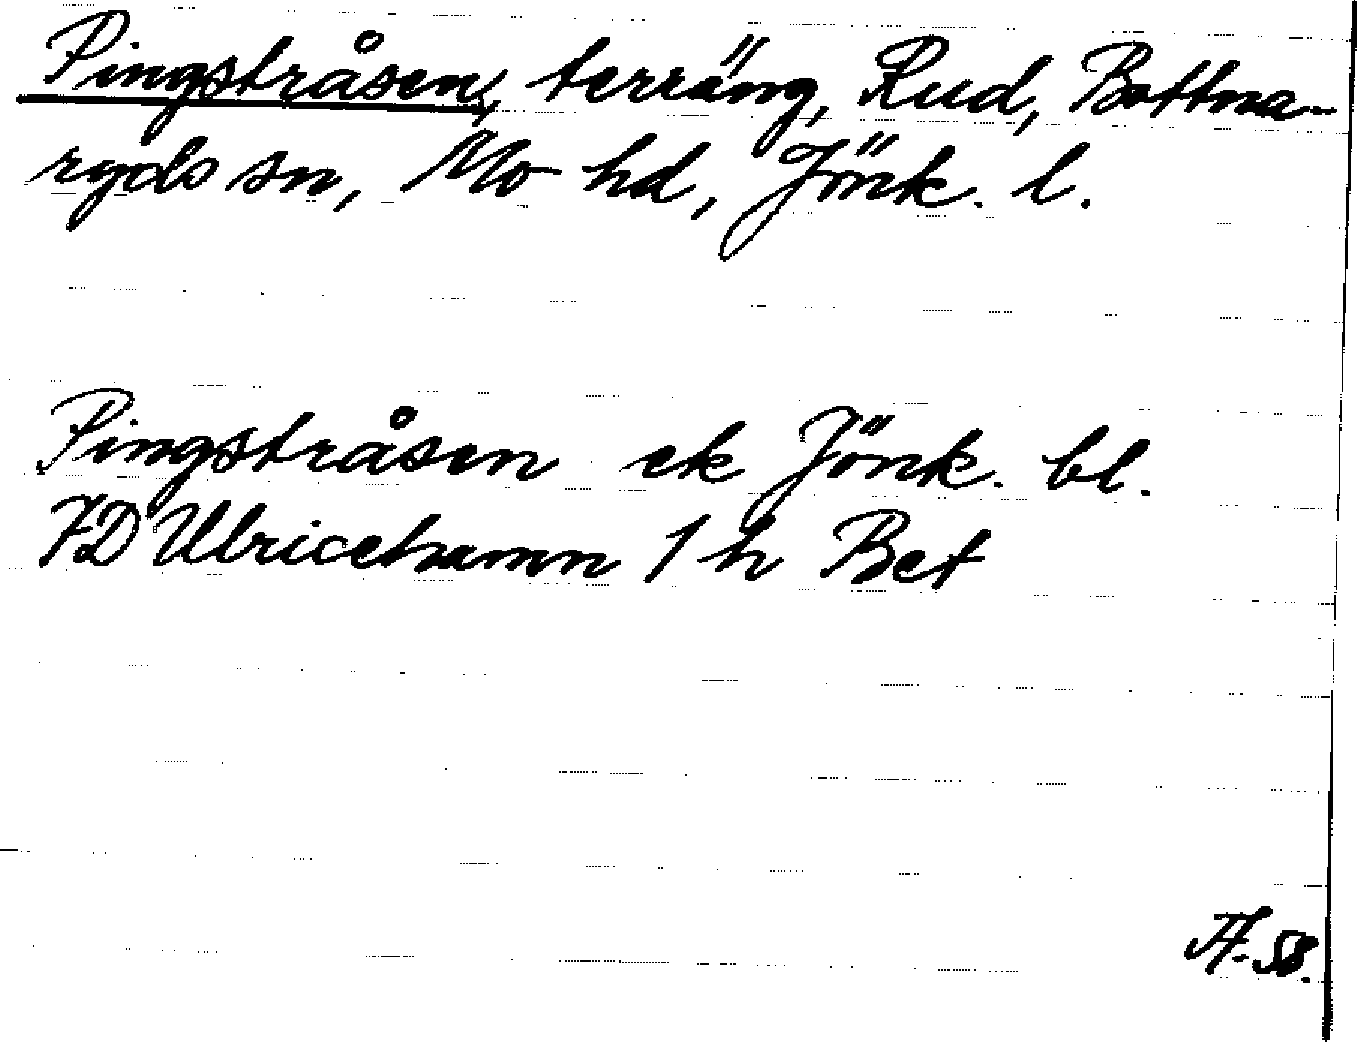 Pingstråsen, terräng, Rud, Bottna-
ryds sn, Mo hd, Jönk. l.
Pingstråsen ek Jönk. bl.
7D Ulricehamn 1 h Bet